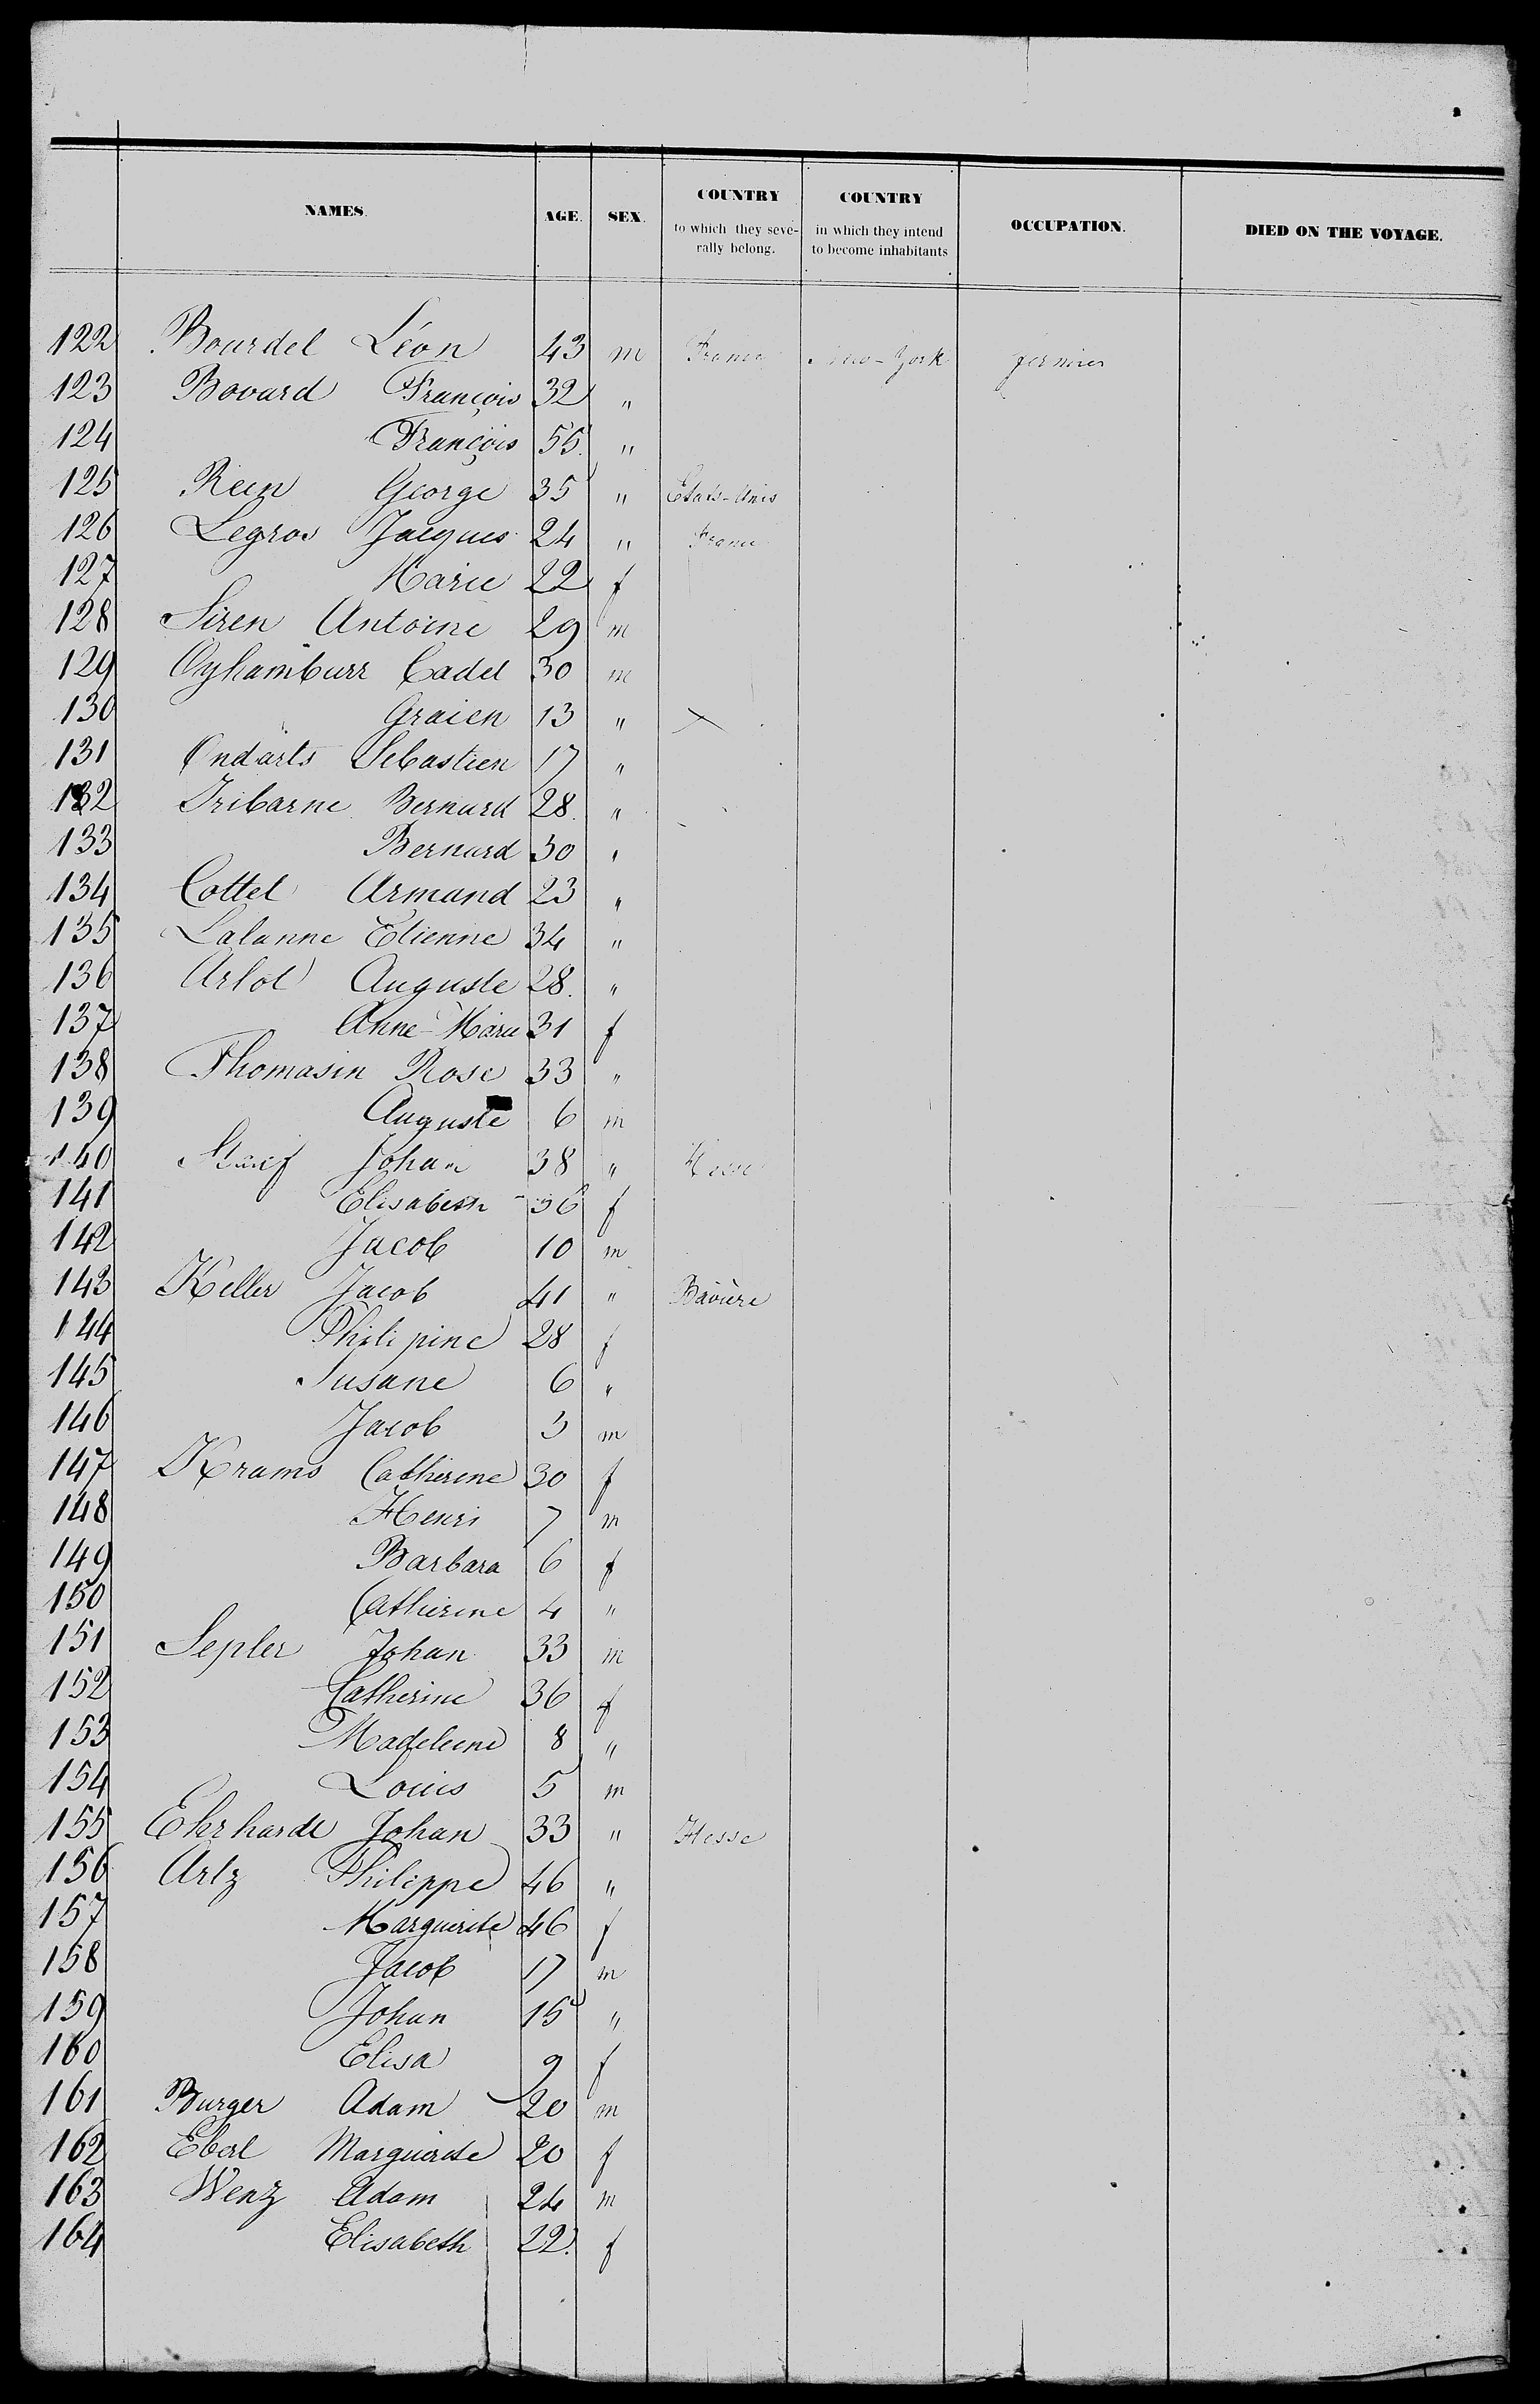 NAMES. AGE. SEX. COUNTRY to which they seve- rally belong. COUNTRY in which they intend to become inhabitants OCCUPATION. DIED ON THE VOYAGE.
122 Bourdel Léon 43 m France New-York fermier
123 Bovard François 32 "
124 François 55 "
125 Reen George 35 " Etats-Unis
126 Legros Jacques 24 " France
127 Marie 22 f
128 Siren Antoine 29 m
129 Oyhamburr Cadet 30 m
130 Graien 13 "
131 Ondarts Sebastien 17 "
132 Iribarne Bernard 28 "
133 Bernard 30 "
134 Cottel Armand 23 "
135 Lalanne Etienne 34 "
136 Arlot Auguste 28 "
137 Anne-Marie 31 f
138 Thomasin Rose 33 "
139 Auguste 6 m
140 Johan 38 " Hesse
141 Elisabeth 36 f
142 Jacob 10 m
143 Keller Jacob 41 " Bavière
144 Philipine 28 f
145 Susane 6 "
146 Jacob 3 m
147 Krams Catherine 30 f
148 Henri 7 m
149 Barbara 6 f
150 Catherine 4 "
151 Sepler Johan 33 m
152 Catherine 36 f
153 Madeleine 8 "
154 Louis 5 m
155 Ehrhardt Johan 33 " Hesse
156 Artz Philippe 46 "
157 Marguerite 46 f
158 Jacob 17 m
159 Johan 15 "
160 Elisa 9 f
161 Burger Adam 20 m
162 Eberl Marguerite 20 f
163 Wenz Adam 24 m
164 Elisabeth 22 f